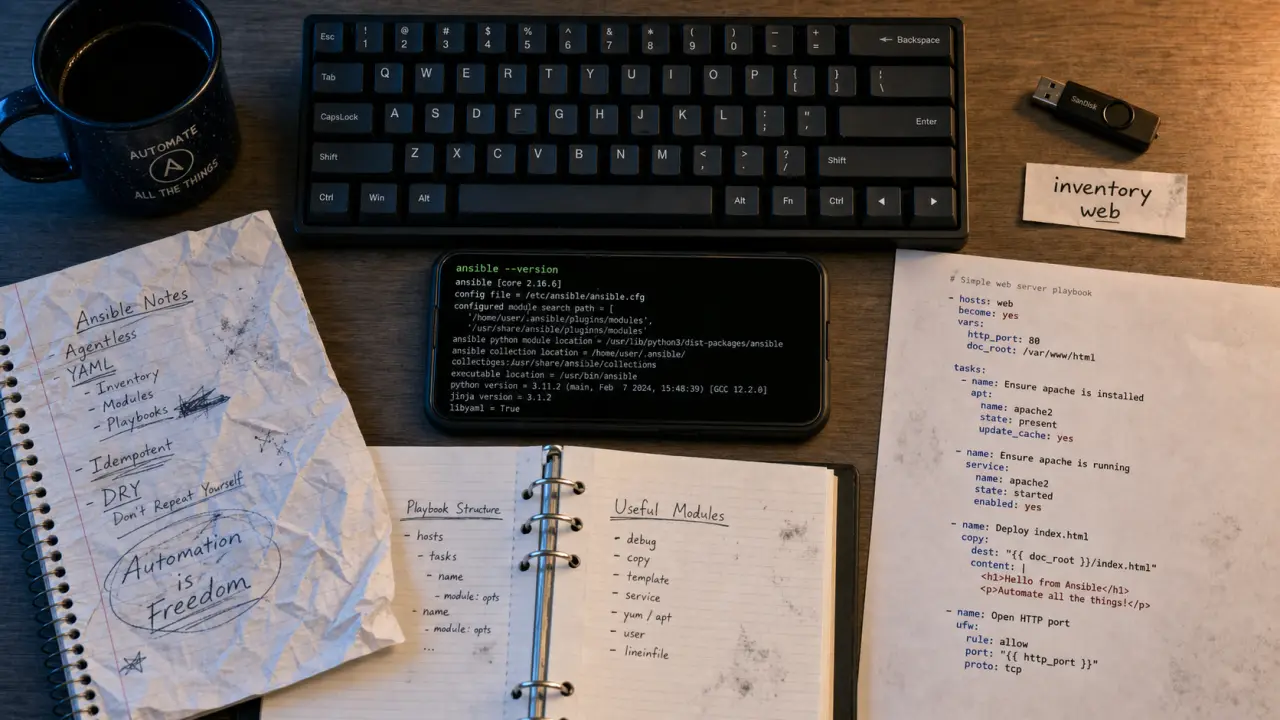 AUTOMATE
A
ALL THE THINGS
Esc ! 1 @ 2 # 3 $ 4 % 5 ^ 6 & 7 * 8 ( 9 ) 0 - - + = ← Backspace
Tab Q W E R T Y U I O P [ [ } ] ¦ \
CapsLock A S D F G H J K L : ; " , Enter
Shift Z X C V B N M < , > . ? / Shift
Ctrl Win Alt Alt Fn Ctrl ◀ ▶
SanDisk
inventory
web
Ansible Notes
- Agentless
- YAML
- Inventory
- Modules
- Playbooks
- Idempotent
- DRY
Don't Repeat Yourself
Automation
is
Freedom
ansible --version
ansible [core 2.16.6]
config file = /etc/ansible/ansible.cfg
configured module search path = [
'/home/user/.ansible/plugins/modules',
'/usr/share/ansible/pluginns/modules'
ansible python module location = /usr/lib/python3/dist-packages/ansible
ansible collection location = /home/user/.ansible/
collectoges:/usr/share/ansible/collections
executable location = /usr/bin/ansible
python version = 3.11.2 (main, Feb 7 2024, 15:48:39) [GCC 12.2.0]
jinja version = 3.1.2
libyaml = True
Playbook Structure
- hosts
- tasks
- name
- module: opts
- name
- module: opts
...
Useful Modules
- debug
- copy
- template
- service
- yum / apt
- user
- lineinfile
# Simple web server playbook
- hosts: web
become: yes
vars:
http_port: 80
doc_root: /var/www/html
tasks:
- name: Ensure apache is installed
apt:
name: apache2
state: present
update_cache: yes
- name: Ensure apache is running
service:
name: apache2
state: started
enabled: yes
- name: Deploy index.html
copy:
dest: "{{ doc_root }}/index.html"
content: |
<h1>Hello from Ansible</h1>
<p>Automate all the things!</p>
- name: Open HTTP port
ufw:
rule: allow
port: "{{ http_port }}"
proto: tcp